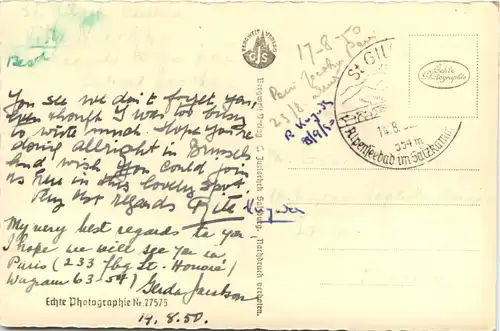 Best
You see we don't forget you,
even though I was too busy
to write much. Hope you're
doing allright in Brussels
and wish you could join
us here in this lovely spot.
Very best regards Rita
My very best regards to you
I hope we will see you in
Paris (233 fbg St. Honoré
Wagram 63-54) Gerda Jacobson
Echte Photographie Nr. 27575
14.8.50.
BERGWELT VERLAG
CJS
Bergwelt-Verlag C. Jurischek Salzburg, Nachdruck verboten.
17-8-50
Paris
25/8
8/9/50
St GIL
14.8.50
554 m
Alpenseebad im Salzkammer
Echte
Photographie